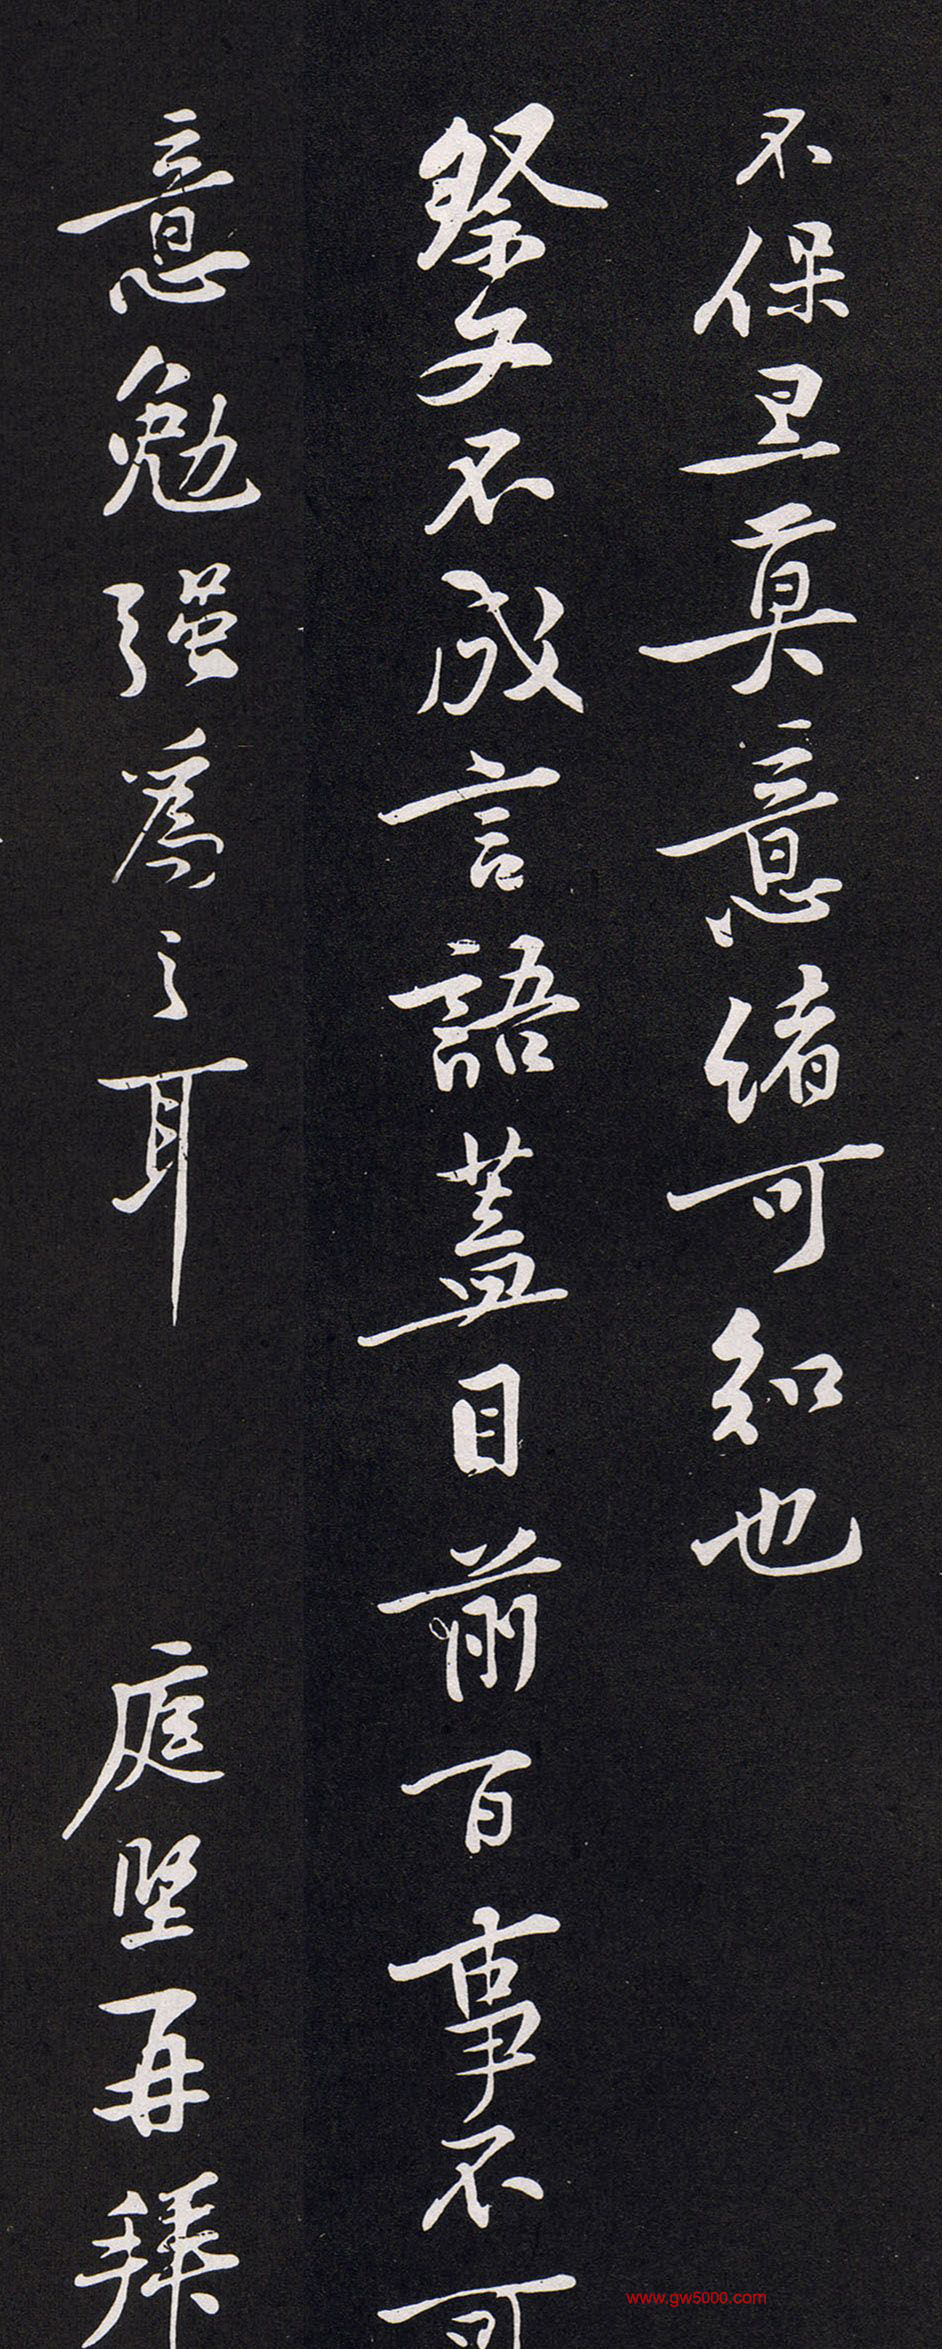 不保旦莫意緒可知也
祭文不成言語蓋目前百事不可
意勉强爲之耳 庭堅再拜
www.gw5000.com